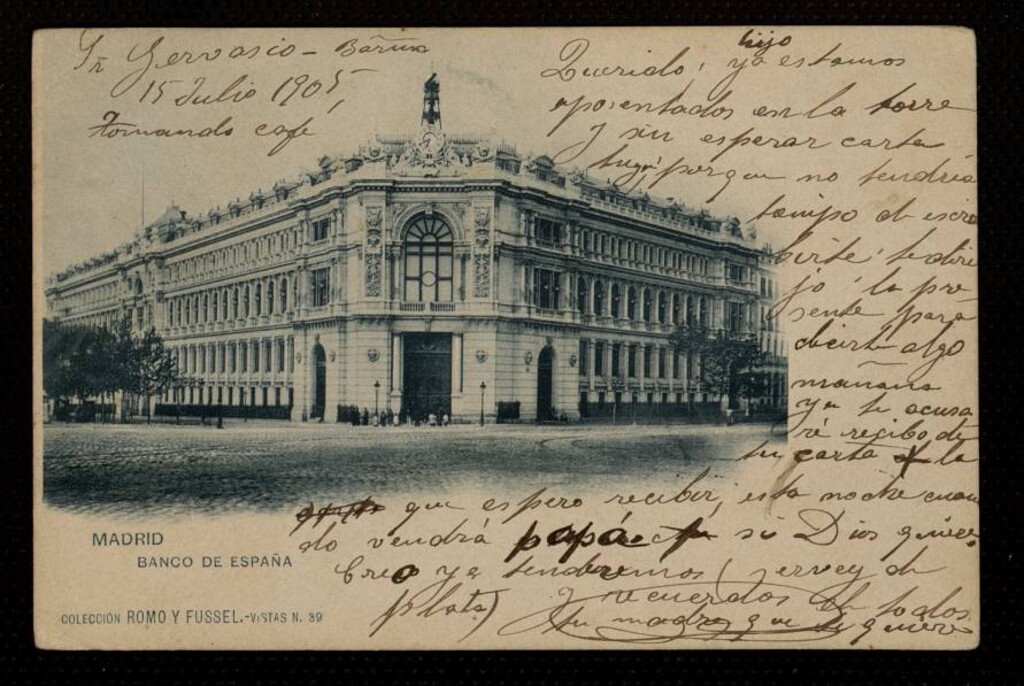 Sr Gervasio - Barna
15 Julio 1905,
Tomando cafe
Querido hijo, ya estamos
aposentados en la torre
y sin esperar carta
tuya porque no tendria
tiempo de escri
birte, te diri
jo la pre
sente para
decirte algo
mañana
ya te acusa
ré recibo de
tu carta
que espero recibir, esta noche cuan
do vendrá papá si Dios quiere
Creo ya tendremos (servey de
plata) y recuerdos de todos
tu madre que te quiere
MADRID
BANCO DE ESPAÑA
COLECCIÓN ROMO Y FUSSEL.-VISTAS N. 39